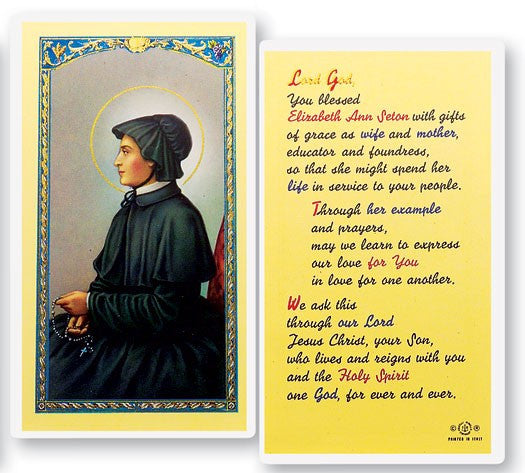 Lord God,
You blessed
Elizabeth Ann Seton with gifts
of grace as wife and mother,
educator and foundress,
so that she might spend her
life in service to your people.
Through her example
and prayers,
may we learn to express
our love for You
in love for one another.
We ask this
through our Lord
Jesus Christ, your Son,
who lives and reigns with you
and the Holy Spirit
one God, for ever and ever.
© ®
PRINTED IN ITALY